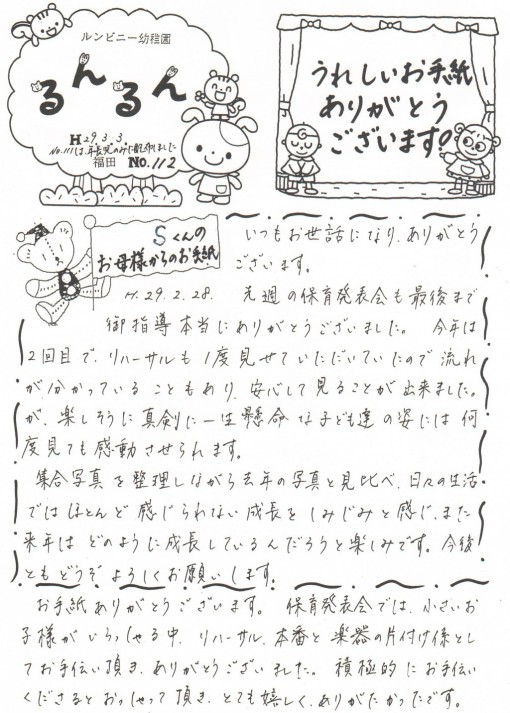 ルンビニー幼稚園
るんるん
H29.3.3
No.111は、年長児のみに配布しました
福田 No.112
うれしいお手紙
ありがとう
ございます。
Sくんの
お母様からのお手紙
いつもお世話になり、ありがとう
ございます。
H.29.2.28. 先週の保育発表会も最後まで
御指導本当にありがとうございました。 今年は
2回目で、リハーサルも1度見せていただいていたので流れ
が分かっていることもあり、安心して見ることが出来ました。
が、楽しそうに真剣に一生懸命な子ども達の姿には何
度見ても感動させられます。
集合写真を整理しながら去年の写真と見比べ、日々の生活
ではほとんど感じられない成長をしみじみと感じ、また
来年はどのように成長しているんだろうと楽しみです。今後
ともどうぞよろしくお願いします。
お手紙ありがとうございます。 保育発表会では、小さいお
子様がいらっしゃる中、リハーサル、本番と楽器の片付け係とし
てお手伝い頂き、ありがとうございました。積極的にお手伝い
くださるとおっしゃって頂き、とても嬉しく、ありがたかったです。